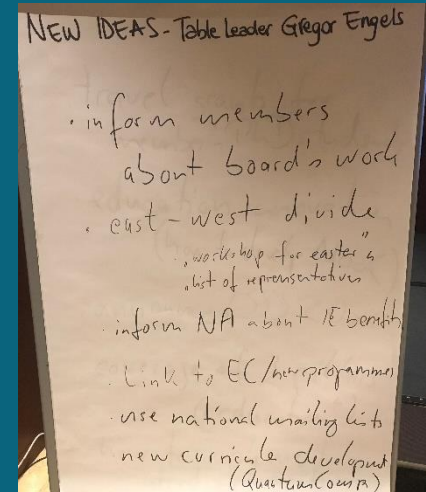 NEW IDEAS - Table Leader Gregor Engels
· inform members
about board's work
· east-west divide
"workshop for eastern"
"list of representatives
· inform NA about IE benefits
· Link to EC/new programmes
· use national mailing lists
new curricula development
(Quantum Comp.)